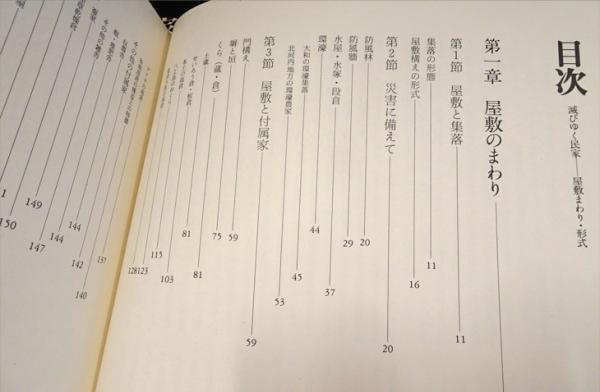 目次
滅びゆく民家──屋敷まわり・形式
第一章 屋敷のまわり
第1節 屋敷と集落 11
集落の形態 11
屋敷構えの形式 16
第2節 災害に備えて 20
防風林 20
防風牆 29
水屋・水塚・段倉 37
環濠 44
大和の環濠集落 45
北河内地方の環濠農家 53
第3節 屋敷と付属家 59
門構え 59
塀と垣 75
くら(蔵・倉) 81
土蔵 81
せいろう倉・板倉
103
115
123
128
137
140
142
144
144
147
149
150